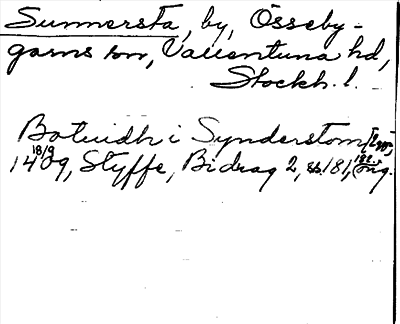 Sunnersta, by, Össeby-
garns sn, Vallentuna hd,
Stockh. l.
Botuidh i Synderstom
18/9 1409, Styffe, Bidrag 2, s. 181, orig.